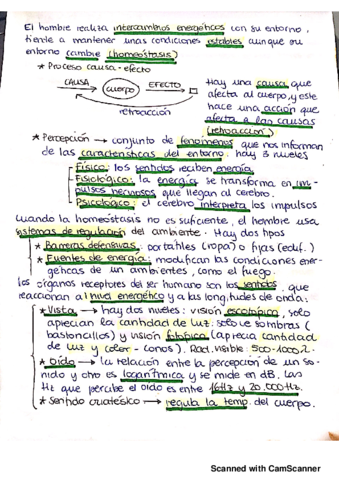 El hombre realiza intercambios energéticos con su entorno,
tiende a mantener unas condiciones estables aunque su
entorno cambie (homeóstasis)
* Proceso causa-efecto
CAUSA
cuerpo
EFECTO
retroacción
Hay una causa que
afecta al cuerpo, y este
hace una acción que
afecta a las causas
(retroacción)
* Percepción → conjunto de fenómenos que nos informan
de las características del entorno: hay 3 niveles
Físico: los sentidos reciben energía
Fisiológico: la energía se transforma en im-
pulsos nerviosos que llegan al cerebro.
Psicológico: el cerebro interpreta los impulsos
Cuando la homeóstasis no es suficiente, el hombre usa
sistemas de regulación del ambiente. Hay dos tipos
* Barreras defensivas: portátiles (ropa) o fijas (edif.)
* Fuentes de energía: modifican las condiciones ener-
géticas de un ambientes, como el fuego.
Los órganos receptores del ser humano son los sentidos, que
reaccionan al nivel energético y a las longitudes de onda:
* Vista → hay dos niveles: visión escotópica, solo
aprecian la cantidad de luz. solo ve sombras (
bastoncillos) y visión fotópica (aprecia cantidad
de luz y color - conos). Rad. visible: 500-1000
* Oído → la relación entre la percepción de un so-
nido y otro es logarítmica y se mide en dB. Las
Hz que percibe el oído es entre 16Hz y 20.000Hz.
* Sentido criotésico → regula la temp. del cuerpo.
Scanned with CamScanner